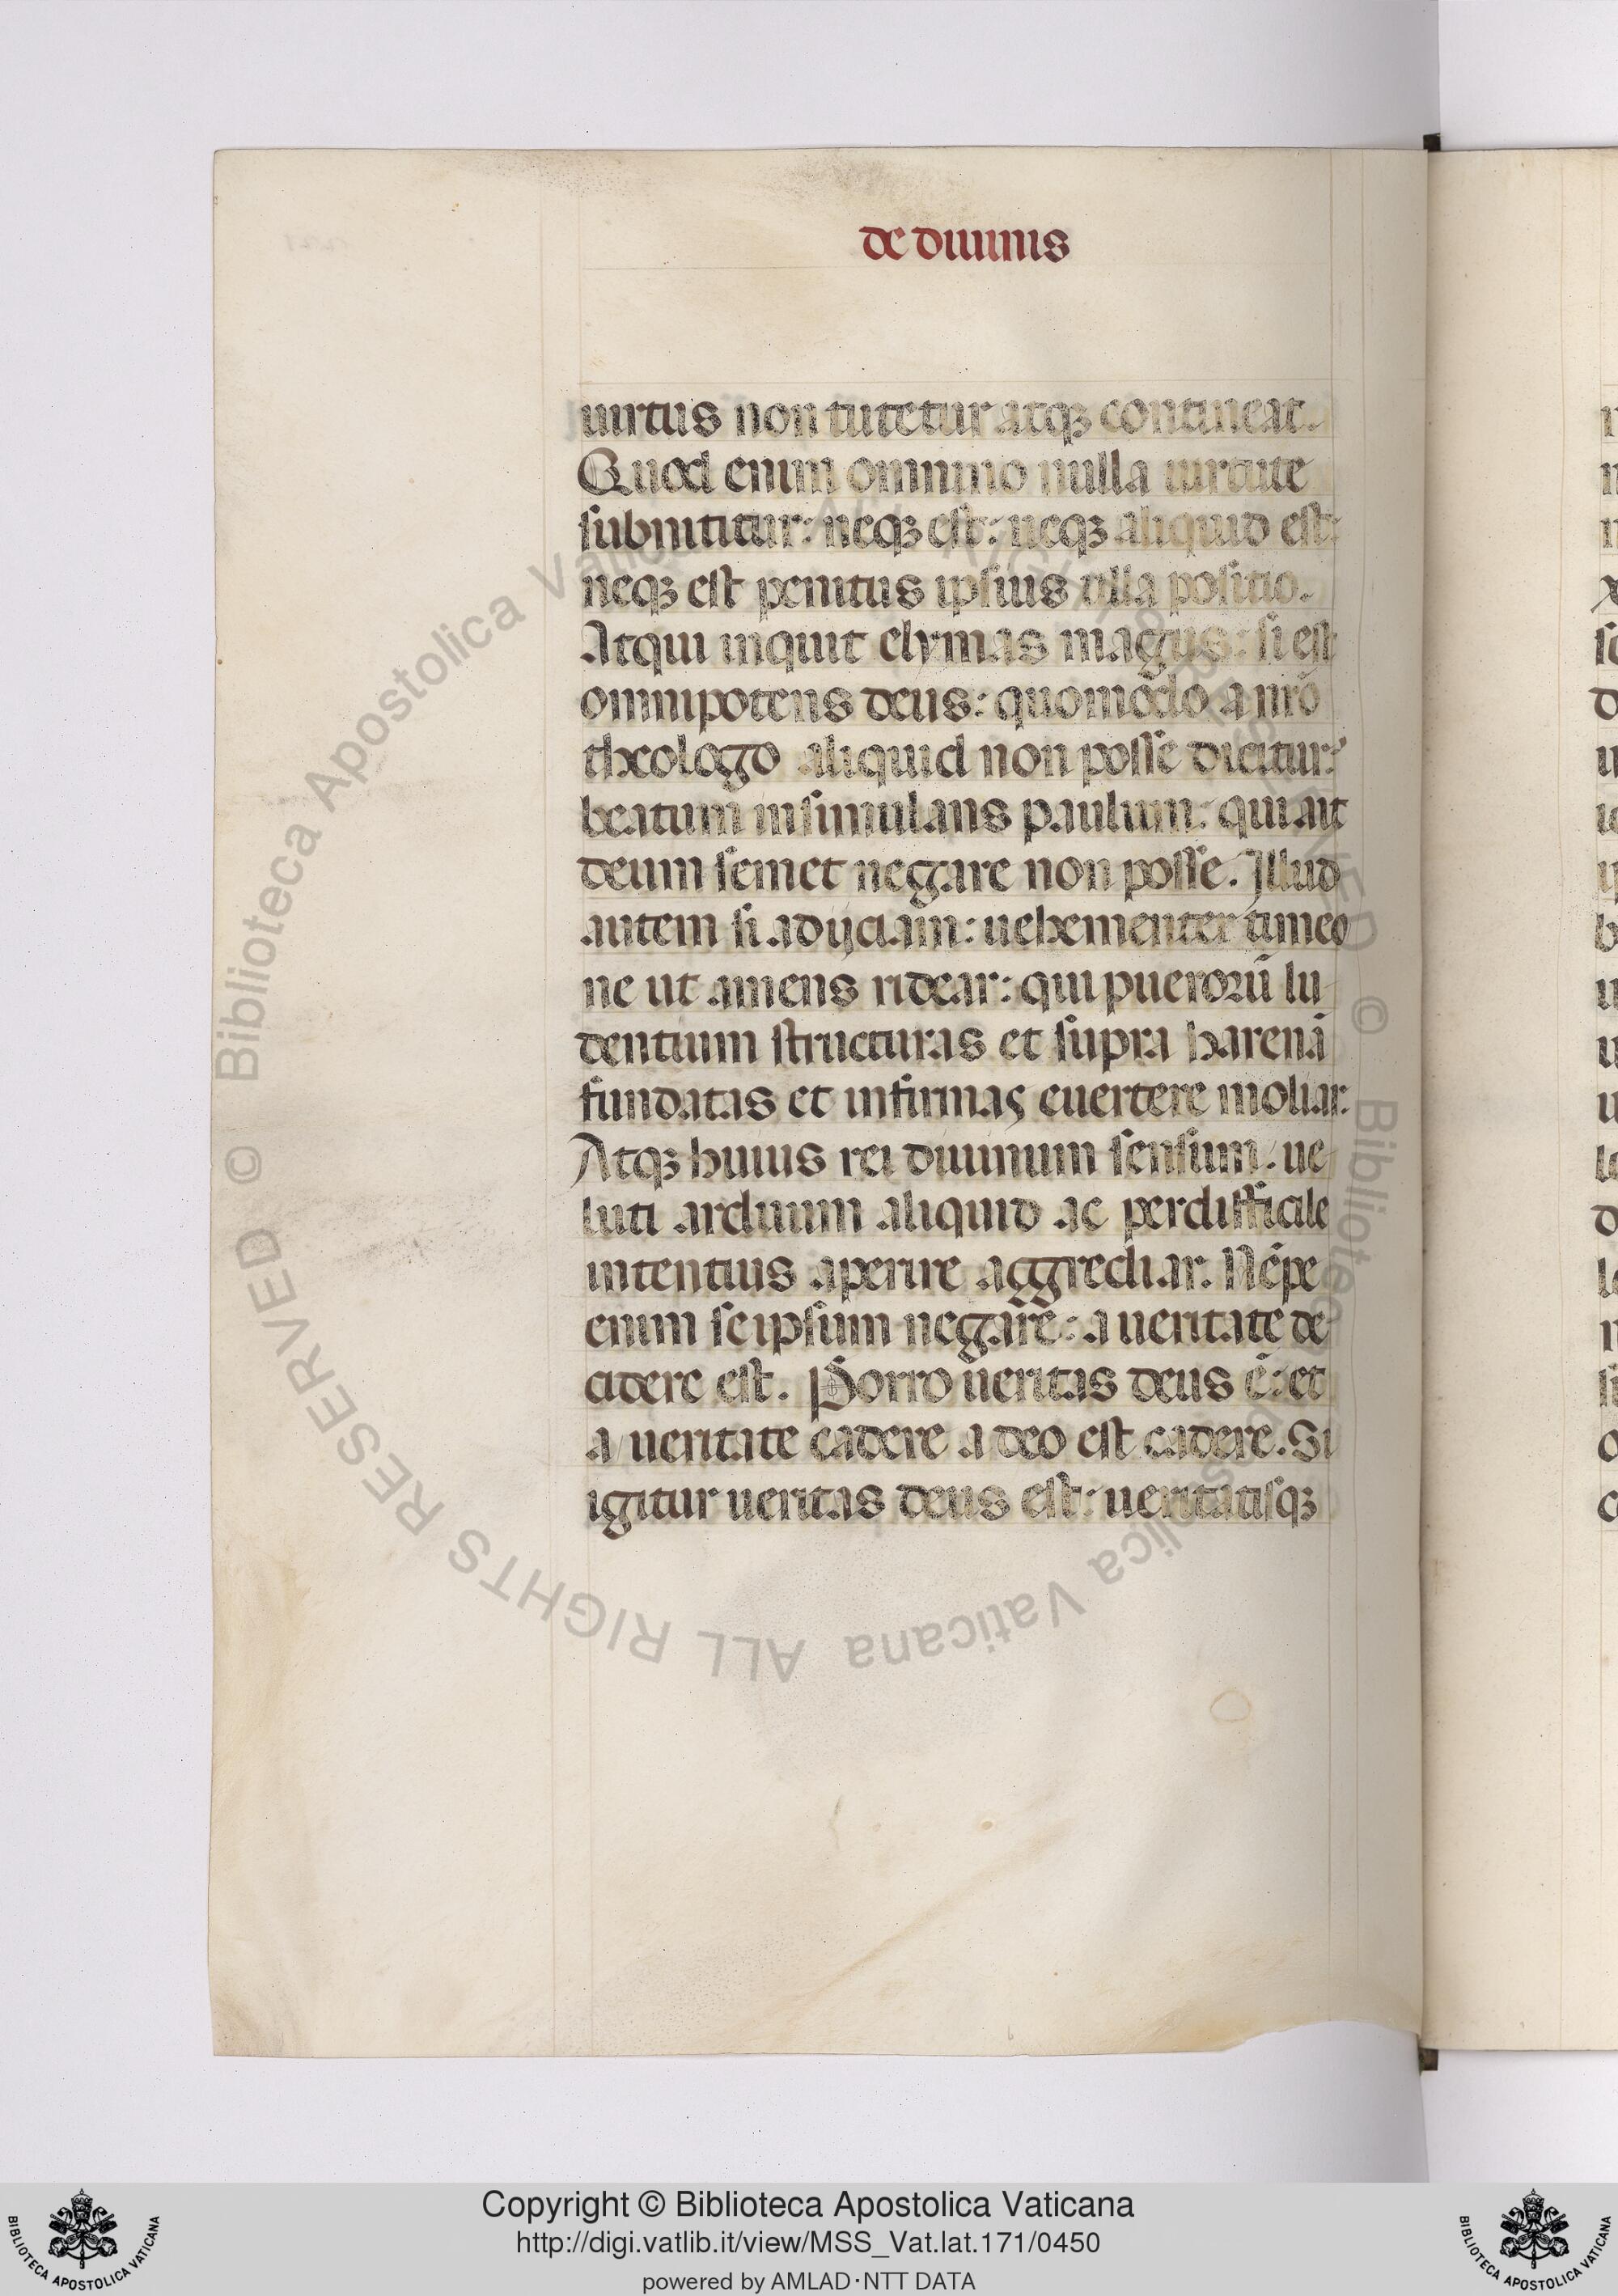 de diuinis
uirtus non tutetur atqꝫ contineat.
Quod enim omnino nulla uirtute
subnititur: neqꝫ est: neqꝫ aliquid est:
neqꝫ est penitus ipsius ulla positio.
Atqui inquit elymas magus: si est
omnipotens deus: quomodo a nr̄o
theologo aliquid non posse dicitur?
beatum insimulans paulum: qui ait
deum semet negare non posse. Illud
autem si adijciam: uehementer timeo
ne ut amens ridear: qui pueroꝛū lu-
dentium structuras et supra harenā
fundatas et infirmas euertere moliar.
Atqꝫ huius rei diuinum sensum. ue-
luti arduum aliquid ac perdifficile
intentius aperire aggrediar. Nēpe
enim seipsum negare: a ueritate de
cidere est. Porro ueritas deus ē: et
a ueritate cadere a deo est cadere. Si
igitur ueritas deus est: ueritatisqꝫ
© Biblioteca Apostolica Vaticana ALL RIGHTS RESERVED
Copyright © Biblioteca Apostolica Vaticana
http://digi.vatlib.it/view/MSS_Vat.lat.171/0450
powered by AMLAD·NTT DATA
BIBLIOTECA APOSTOLICA VATICANA
BIBLIOTECA APOSTOLICA VATICANA